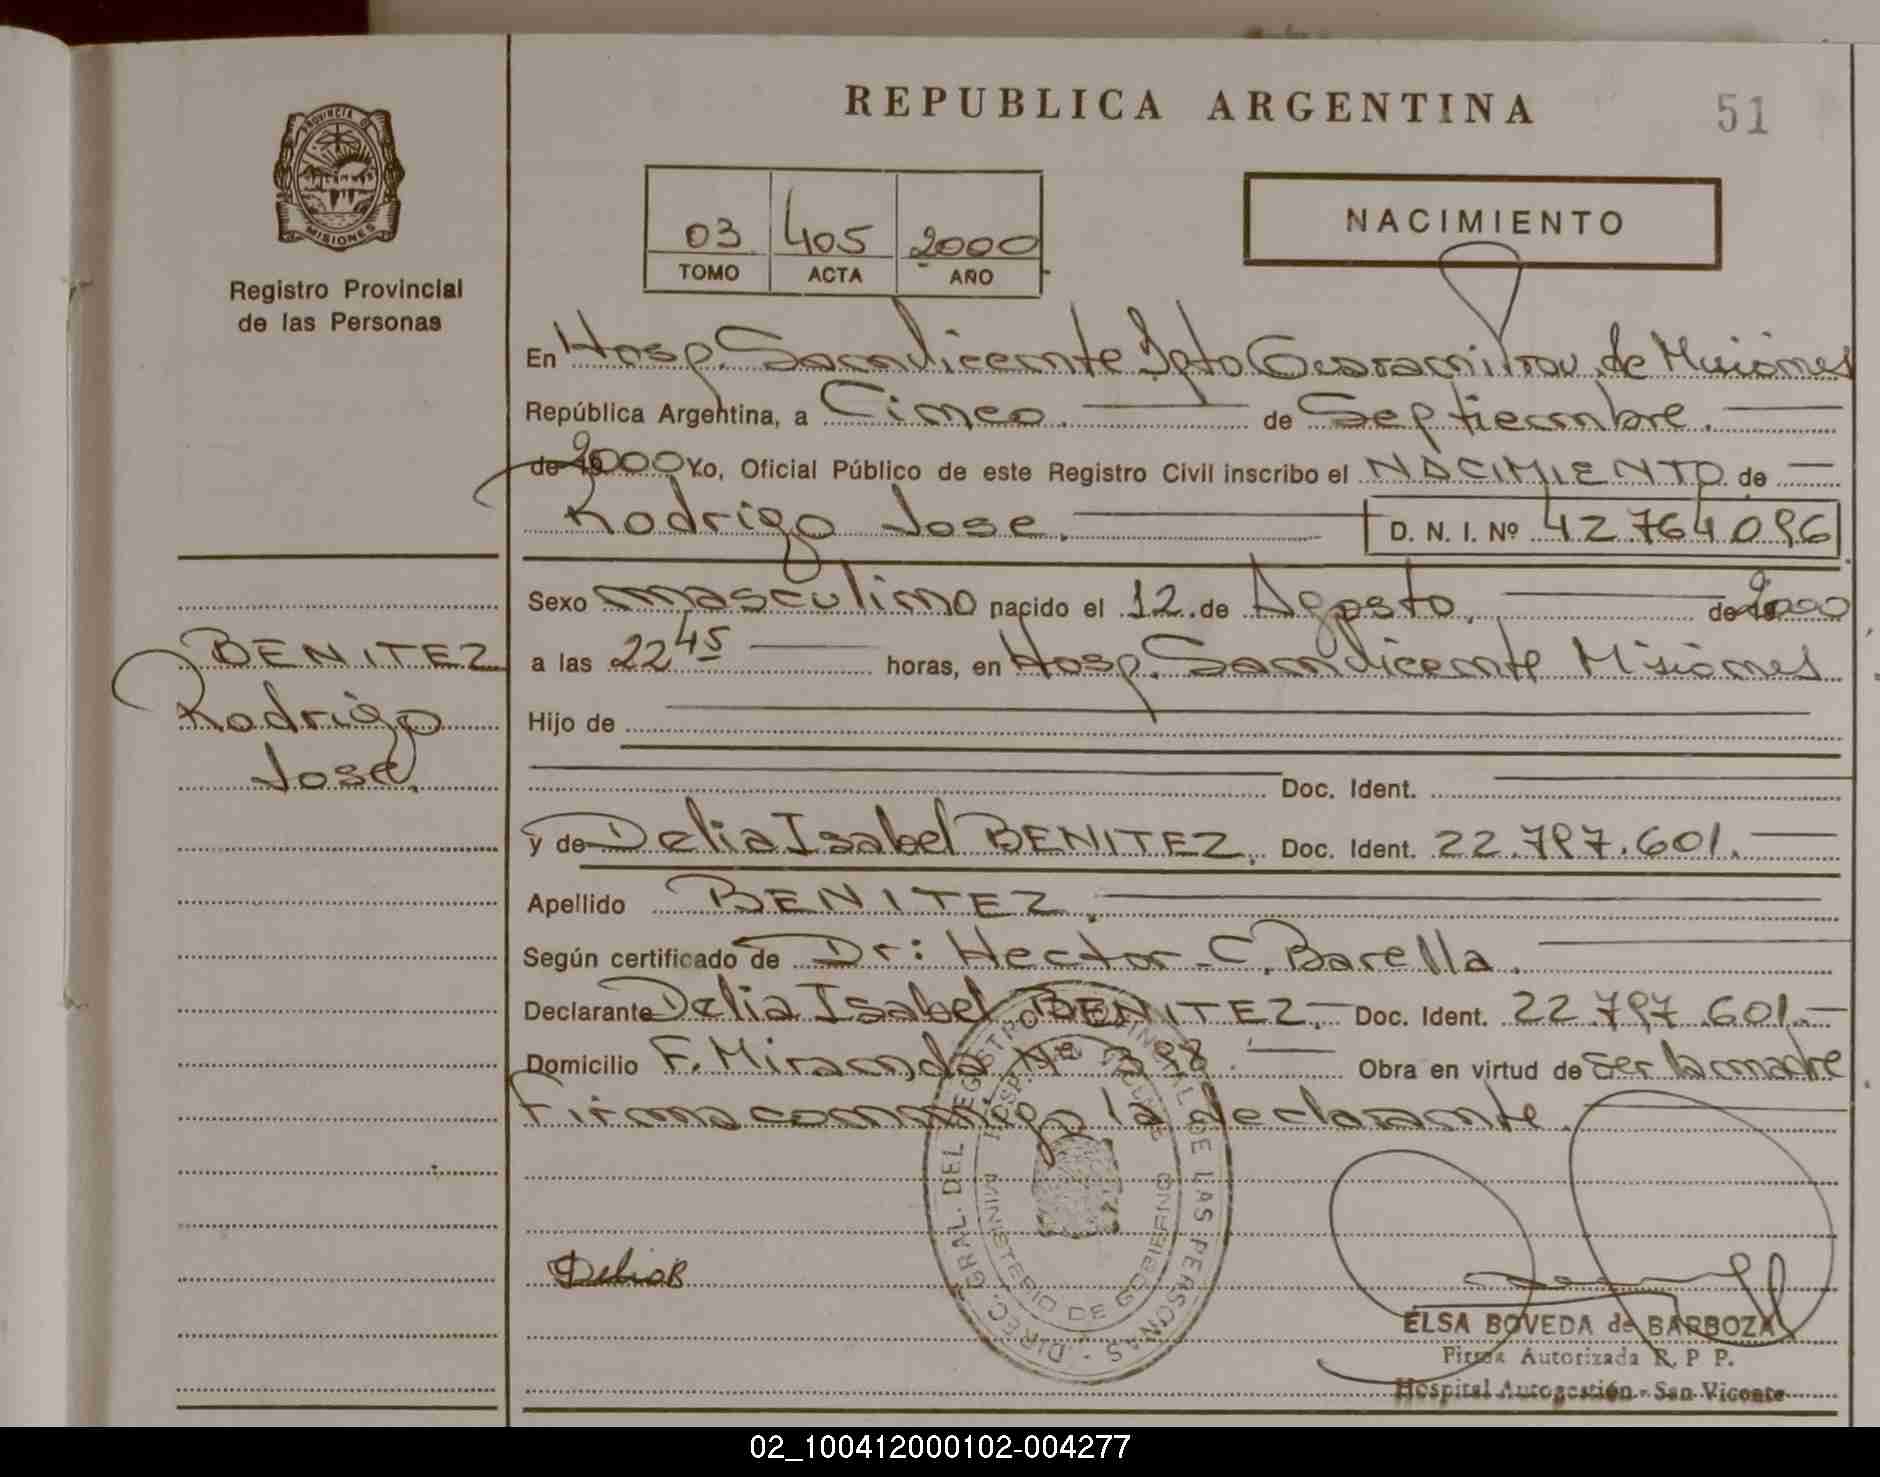 REPUBLICA ARGENTINA
51
PROVINCIA DE
MISIONES
Registro Provincial
de las Personas
03 405 2000
TOMO ACTA AÑO
NACIMIENTO
En Hosp. San Vicente Dpto Guarani Prov. de Misiones
República Argentina, a Cinco. de Septiembre.
de 2000 Yo, Oficial Público de este Registro Civil inscribo el NACIMIENTO de
Rodrigo Jose. D. N. I. Nº 42.764.096
Sexo masculino nacido el 12 de Agosto. de 2000
a las 22 45 horas, en Hosp. San Vicente Misiones
Hijo de
Doc. Ident.
y de Delia Isabel BENITEZ. Doc. Ident. 22.797.601.
Apellido BENITEZ.
Según certificado de Dr: Hector C. Barella.
Declarante Delia Isabel BENITEZ. Doc. Ident. 22.797.601.
Domicilio F. Miranda Nº 398. Obra en virtud de ser la madre
Firma conmigo la declarante.
BENITEZ
Rodrigo
Jose.
DIREC. GRAL. DEL REGISTRO PROVINCIAL DE LAS PERSONAS
MINISTERIO DE GOBIERNO
Delia B
ELSA BOVEDA de BARBOZA
Firma Autorizada R. P P.
Hospital Autogestión - San Vicente
02_100412000102-004277